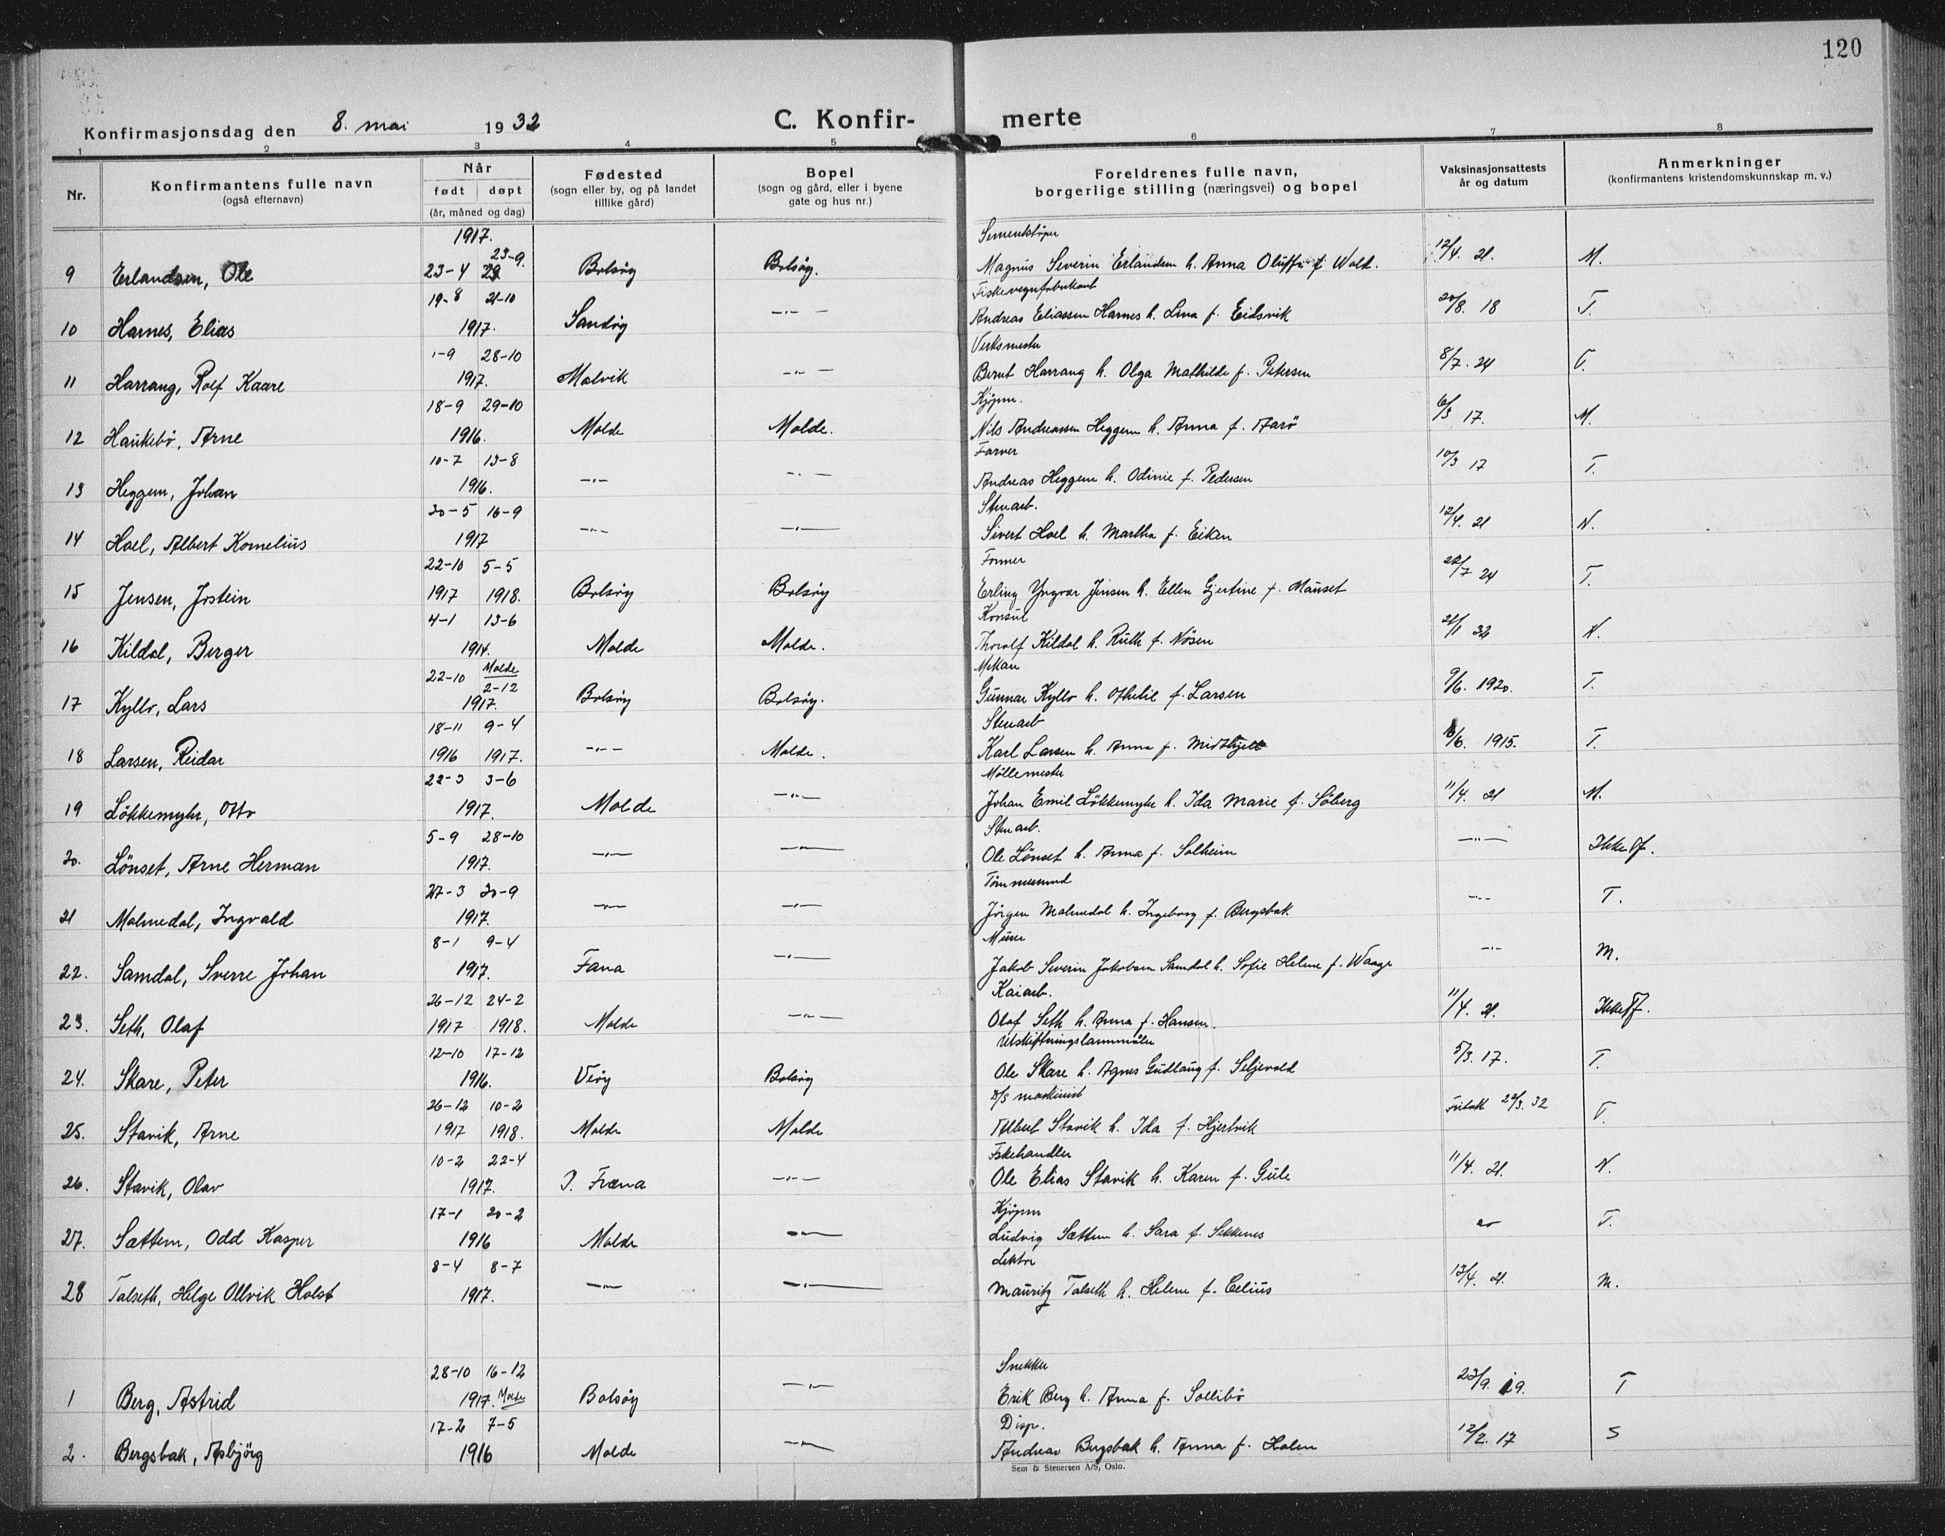 120
Konfirmasjonsdag den 8. mai 1932 C. Konfirmerte
1 2 3 4 5 6 7 8
Nr. Konfirmantens fulle navn (også efternavn) Når født døpt (år, måned og dag) Fødested (sogn eller by, og på landet tillike gård) Bopel (sogn og gård, eller i byene gate og hus nr.) Foreldrenes fulle navn, borgerlige stilling (næringsvei) og bopel Vaksinasjonsattests år og datum Anmerkninger (konfirmantens kristendomskunnskap m. v.)
1917. 23-9.
9 Erlandsen, Ole 23-4 Bolsøy Bolsøy. Magnus Severin Erlandsen h. Anna Oluffa f. Wold. 12/4. 21. M.
19-8 21-10
10 Harnes, Elias 1917. Sandøy -"- Andreas Eliassen Harnes h. Lina f. Eidsvik 20/8. 18 T.
1-9 28-10 Verksmester
11 Harrang, Rolf Kaare 1917. Malvik -"- Bernt Harrang h. Olga Mathilde f. Petersen 8/7. 24 T.
18-9 29-10 Kjøpm.
12 Haukebø, Arne 1916. Molde Molde. Nils Andreassen Heggem h. Anna f. Aarö 6/3 17. M.
10-7 13-8 Farver
13 Heggem, Johan 1916. -"- -"- Andreas Heggem h. Odinie f. Pedersen 10/3 17 T.
20-5 16-9 Stenarb.
14 Hoel, Albert Kornelius 1917 -"- -"- Sivert Hoel h. Martha f. Eikan 12/4. 21 N.
22-10 5-5 Former
15 Jensen, Jostein 1917 1918. Bolsøy Bolsøy Erling Yngvar Jensen h. Ellen Gjertine f. Mauset 22/7 24 T.
4-1 13-6 Konsul
16 Kildal, Berger 1914. Molde Molde. Thoralf Kildal h. Ruth f. Nøsen 21/1 32 N.
22-10 Molde 2-12 Mekan
17 Kyllo, Lars 1917. Bolsøy Bolsøy. Gunnar Kyllo h. Othelie f. Larsen 9/6. 1920. T.
18-11 9-4 Stenarb
18 Larsen, Reidar 1916 1917. -"- Molde. Karl Larsen h. Anna f. Midthjell 1915. T.
22-3 3-6 Møllemester
19 Løkkemyhr, Otto 1917. Molde -"- Johan Emil Løkkemyhr h. Ida Marie f. Søberg 11/4. 21 M.
5-9 28-10 Stenarb.
20. Lönset, Arne Herman 1917. -"- -"- Ole Lönset h. Anna f. Solheim -"- Ikke Tf.
27-3 30-9 Tømmermand
21 Malmedal, Ingvald 1917. -"- -"- Jörgen Malmedal h. Ingeborg f. Bergsbak -"- T.
8-1 9-4 Murer
22. Samdal, Sverre Johan 1917. Fana -"- Jakob Severin Jakobsen Samdal h. Sofie Helene f. Waage -"- M.
26-12 24-2 Kaiarb.
23. Seth, Olaf 1917 1918. Molde -"- Olaf Seth h. Anna f. Hansen. 11/4. 21. Ikke Tf.
12-10 17-12
24. Skare, Peter 1916. Veøy Bolsøy Ole Skare h. Agnes Gudlaug f. Seljevold 5/3. 17. T.
26-12 10-2 D/S maskinist
25. Stavik, Arne 1917 1918. Molde Molde Albert Stavik h. Ida f. Hjertvik Fritatt 22/3. 32 T.
10-2 22-4 Fiskehandler
26. Stavik, Olav 1917. I. Fræna -"- Ole Elias Stavik h. Karen f. Gule 11/4. 21. N.
17-1 20-2 Kjøpm
27. Sættem, Odd Kasper 1916 Molde -"- Ludvig Sættem h. Sara f. Sekkenes T.
8-4 8-7 Lektor
28 Talseth, Helge Ollvik Holst 1917. -"- -"- Mauritz Talseth h. Helene f. Celius 13/4. 21. M.
28-10 16-12 Snekker
1 Berg, Astrid 1917. Molde Bolsøy -"- Erik Berg h. Anna f. Sollibø 23/9. 19. T
17-2 7-5 Disp.
2. Bergsbak, Asbjörg 1916 Molde -"- Andreas Bergsbak h. Anna f. Holen 12/2. 17 S
Sem & Stenersen A/S, Oslo.